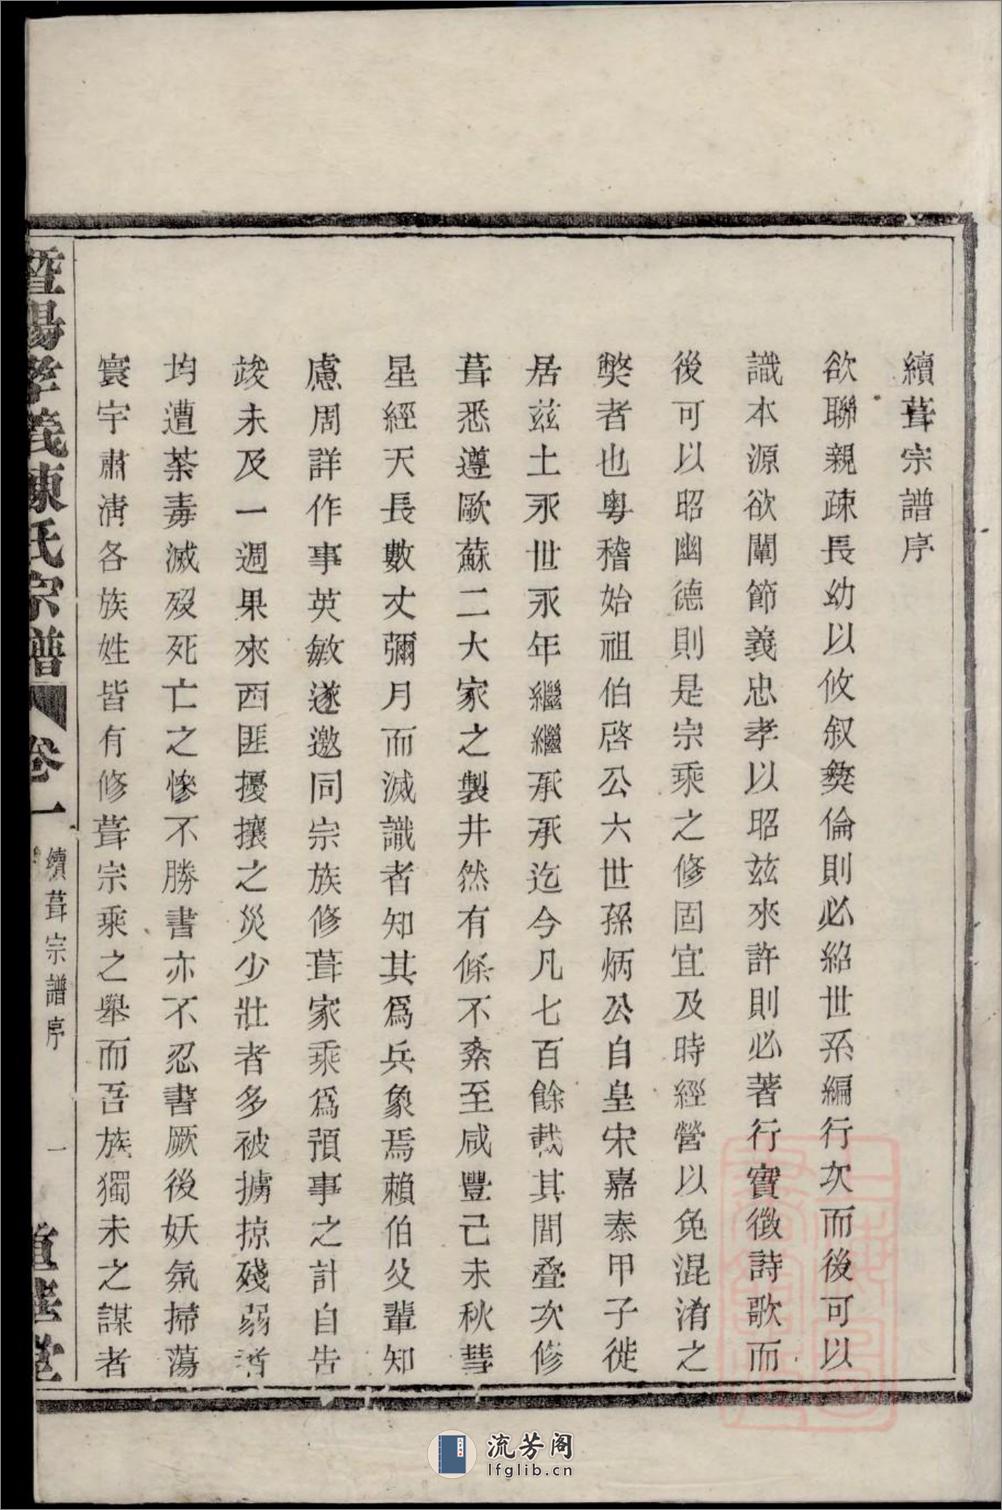 續葺宗譜序
欲聯親疎長幼以攸叙彝倫則必紹世系編行次而後可以
識本源欲闡節義忠孝以昭兹來許則必著行實徵詩歌而
後可以昭幽德則是宗乘之修固宜及時經營以免混淆之
弊者也粤稽始祖伯啓公六世孫炳公自皇宋嘉泰甲子徙
居兹土永世永年繼繼承承迄今凡七百餘載其間叠次修
葺悉遵歐蘇二大家之製井然有條不紊至咸豐己未秋彗
星經天長數丈彌月而滅識者知其爲兵象焉賴伯父輩知
慮周詳作事英敏遂邀同宗族修葺家乘爲預事之計自告
竣未及一週果來西匪擾攘之災少壯者多被擄掠殘弱者
均遭荼毒滅殁死亡之慘不勝書亦不忍書厥後妖氛掃蕩
寰宇肅清各族姓皆有修葺宗乘之舉而吾族獨未之謀者
暨陽孝義陳氏宗譜 卷一 續葺宗譜序 一
流芳阁
lfglib.cn